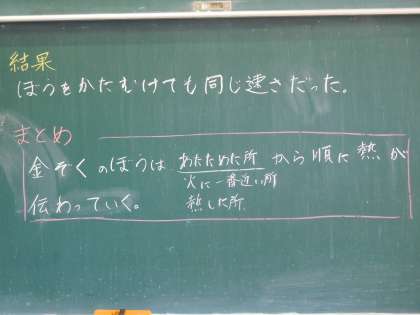 結果
ぼうをかたむけても同じ速さだった。
まとめ
金ぞくのぼうは あたためた所 から順に熱が
火に一番近い所
熱した所
伝わっていく。